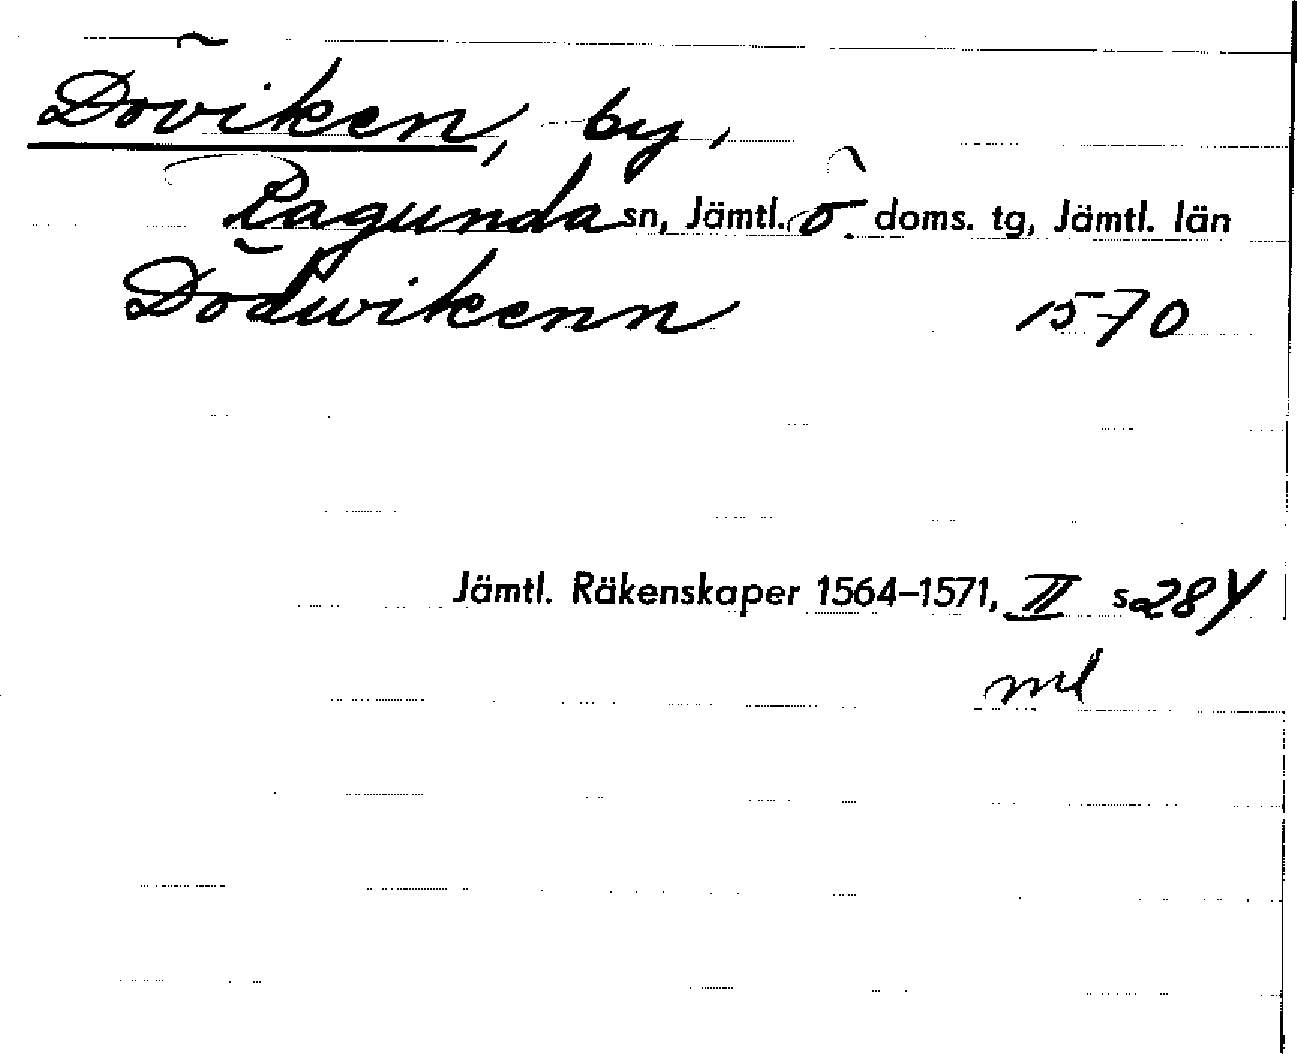 Döviken, by,
Ragunda sn, Jämtl. ö. doms. tg, Jämtl. län
Dödwikenn 1570
Jämtl. Räkenskaper 1564–1571, II s. 284